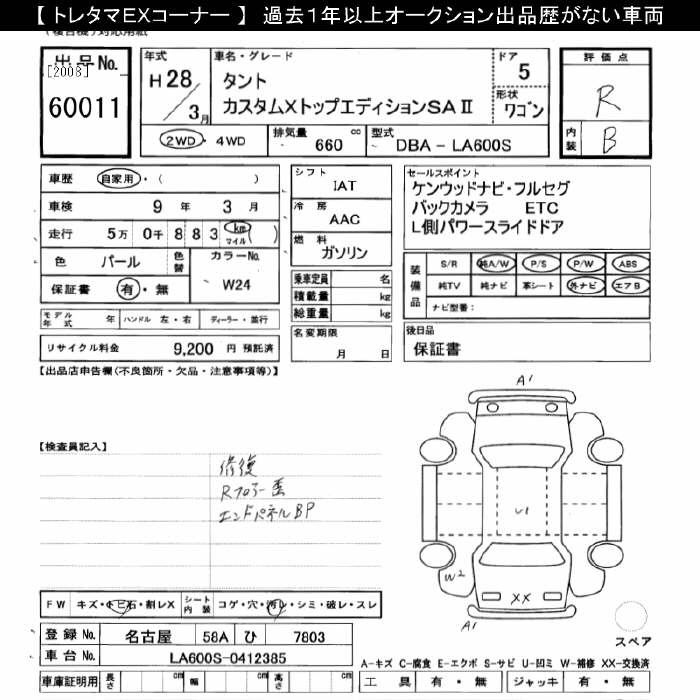 【 トレタマEXコーナー 】 過去1年以上オークション出品歴がない車両
出品No.
[2008]
60011
年式
H 28 / 3月
車名・グレード
タント
カスタムXトップエディションSAⅡ
ドア
5
形状
ワゴン
2WD ・ 4WD
排気量 660 cc
型式 DBA - LA600S
評価点
R
内装 B
車歴 自家用・( )
車検 9 年 3 月
走行 5万 0千 8 8 3 km マイル
色 パール 色替
カラーNo. W24
保証書 有・無
シフト
IAT
冷房
AAC
燃料
ガソリン
乗車定員 名
積載量 kg
総重量 kg
セールスポイント
ケンウッドナビ・フルセグ
バックカメラ ETC
L側パワースライドドア
装備品
S/R 純A/W P/S P/W ABS
純TV 純ナビ 革シート 外ナビ エアB
ナビ型番：
モデル年式 年 ハンドル 左・右 ディーラー・並行
リサイクル料金 9,200 円 預託済
名変期限
月 日
後日品
保証書
【出品店申告欄(不良箇所・欠品・注意事項等)】
【検査員記入】
修復
Rフロアー歪
エンドパネルBP
A1
U1
W2
XX
A1
スペア
FW キズ・トビ石・割レX
シート内装 コゲ・穴・汚レ・シミ・破レ・スレ
登録No. 名古屋 58A ひ 7803
車台No. LA600S-0412385
車庫証明用 長さ cm 幅 cm 高さ cm
A-キズ C-腐食 E-エクボ S-サビ U-凹ミ W-補修 XX-交換済
工具 有・無 ジャッキ 有・無